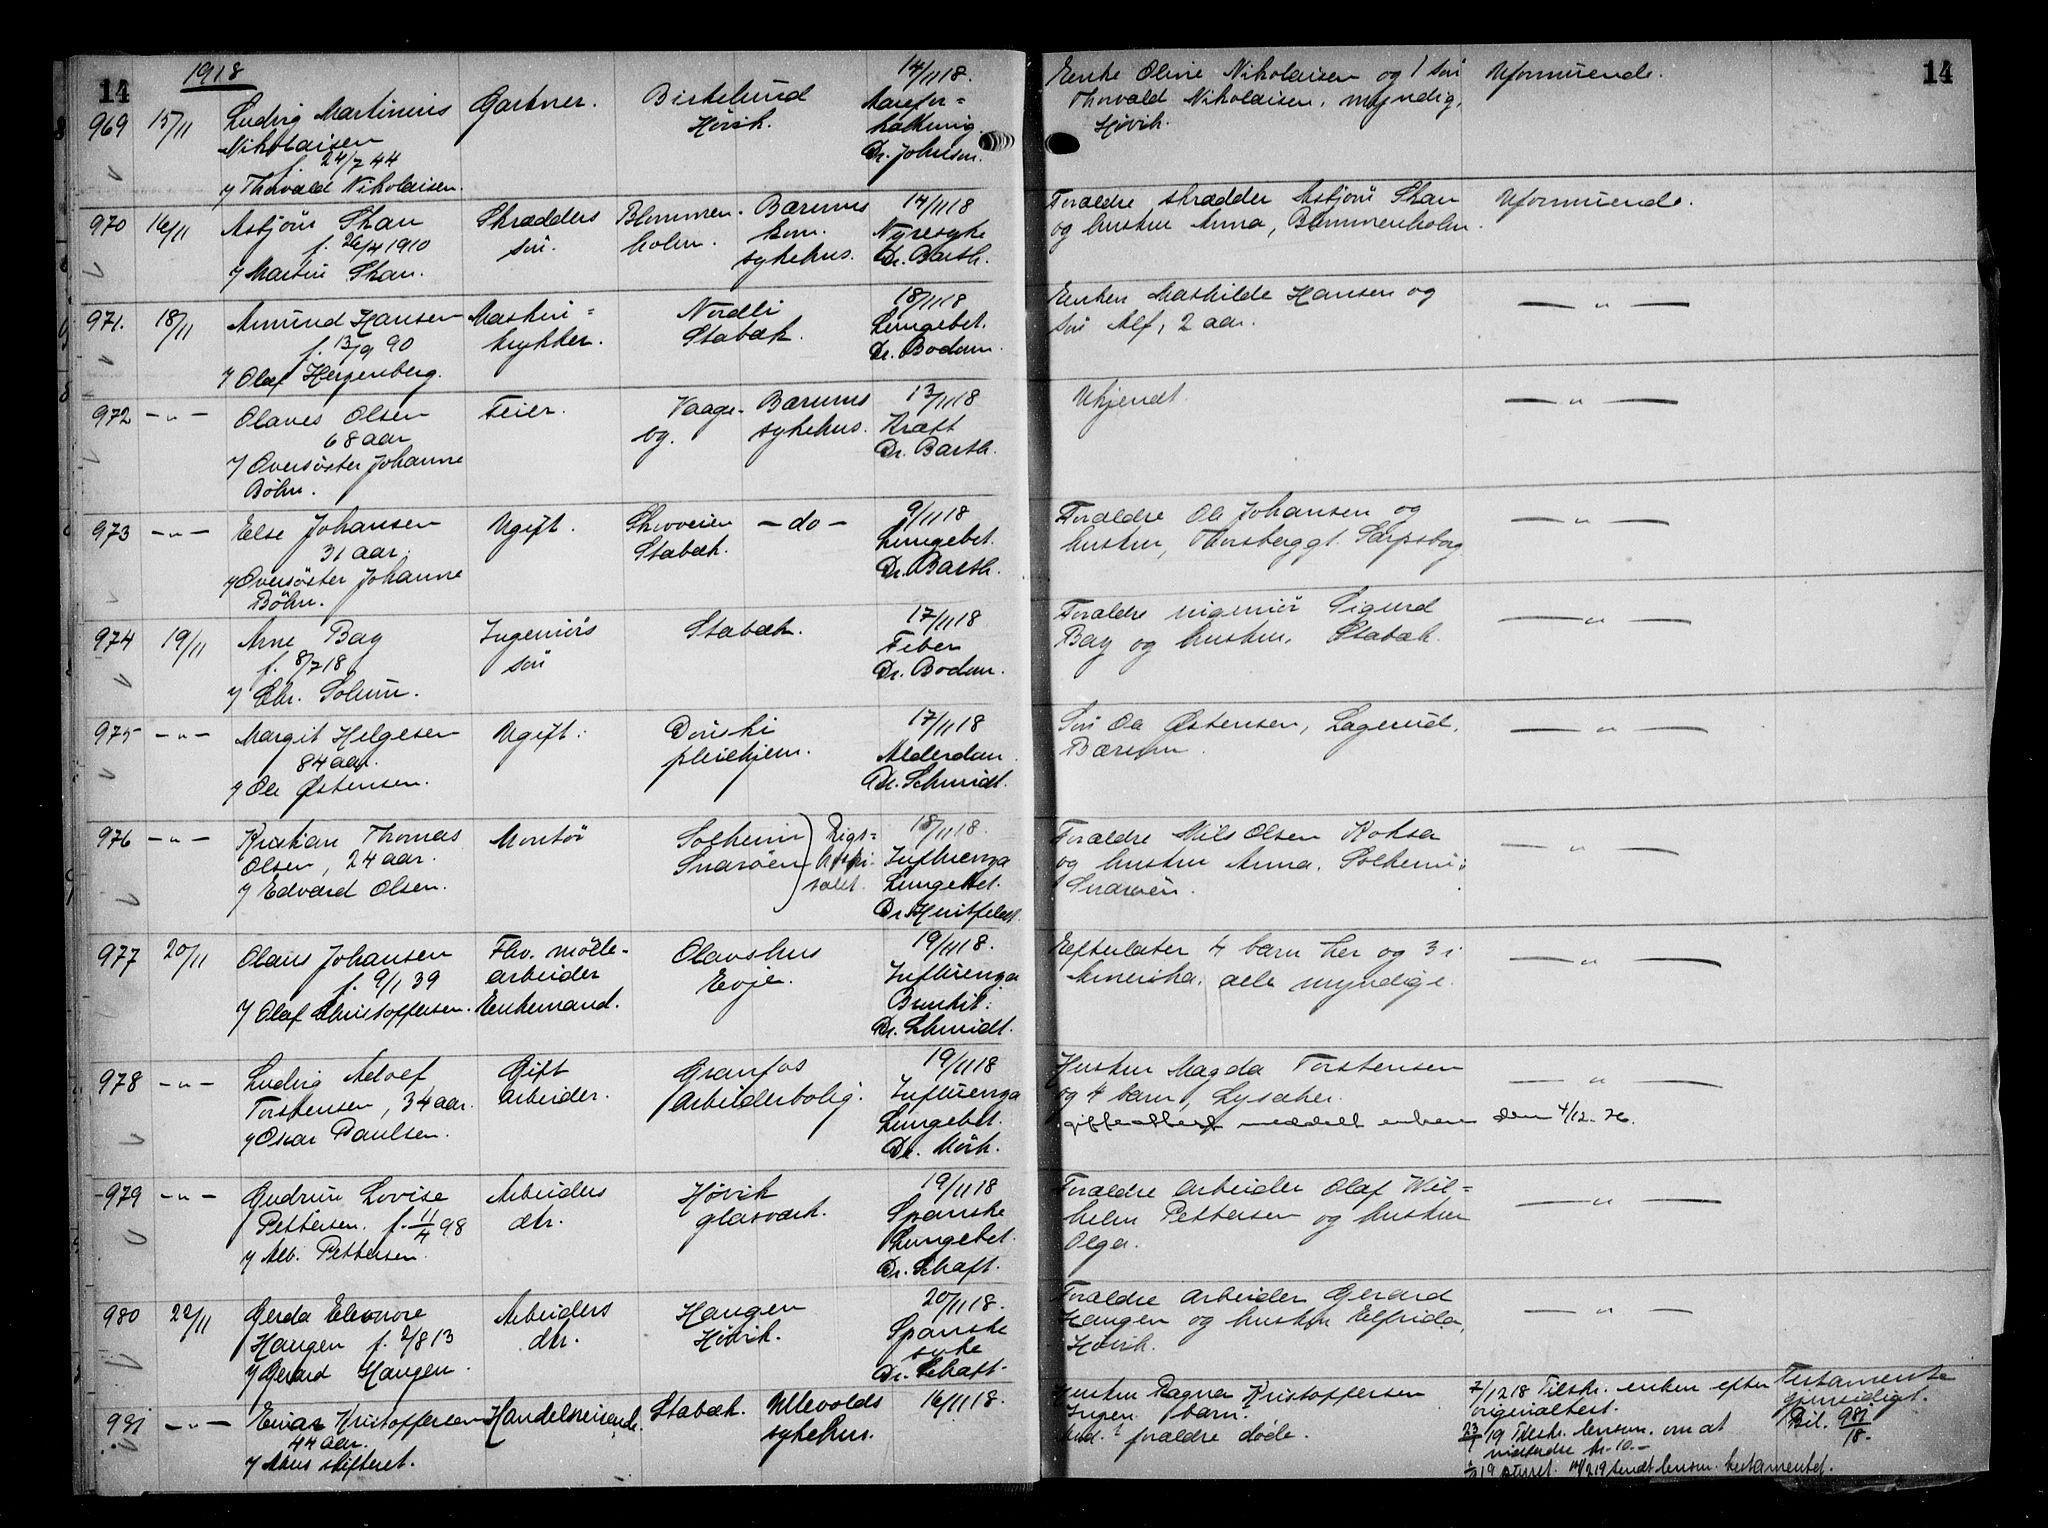 14
1918
14
969 15/11 Ludvig Martinius Gartner. Birkelund 14/11 18. Enke Oline Nikolaisen og 1 søn Uformuende.
Nikolaisen Høvik. Aarefor= Thorvald Nikolaisen, myndig,
f. 24/7 44 kalkning. Høvik.
Thorvald Nikolaisen. Dr. Johnsen.
970 16/11 Asbjørn Skau Skrædders Blommen- Bærums 14/11 18 Forældre skrædder Asbjørn Skau Uformuende.
f. 26/4 1910 søn. holm. kom. Nyresyke og hustru Anna, Blommenholm.
Martin Skau. sykehus. Dr. Barth.
971. 18/11 Amund Hansen Maskin= Nordli 18/11 18 Enken Mathilde Hansen og — " —
f. 13/9 90 trykker. Stabæk Lungebet. søn Alf, 2 aar.
Olaf Hergenberg. Dr. Bodom.
972 — " — Olaves Olsen Feier. Vaage- Bærums 13/11 18 Ukjendt — " —
68 aar by. sykehus. Kræft
Oversøster Johanne Dr. Barth.
Bøhn.
973 — " — Else Johansen Ugift. Skovveien — do — 9/11 18 Forældre Ole Johansen og — " —
31 aar. Stabæk. Lungebet. hustru, Sarpsborg
Oversøster Johanne Dr. Barth.
Bøhn.
974 19/11 Arne Bay Ingeniørs Stabæk. 17/11 18 Forældre ingeniør Sigurd — " —
f. 8/7 18 søn Feber Bay og hustru, Stabæk.
Chr. Solum. Dr. Bodom.
975 — " — Margit Helgesen Ugift. Dønski 17/11 18 Søn Ole Østensen, Lagerud, — " —
84 aar. pleiehjem. Alderdom. Bærum.
Ole Østensen. Dr. Schmidt.
976 — " — Kristian Thomas Montør Solheim Rigs= 18/11 18. Forældre Nils Olsen Koksa — " —
Olsen, 24 aar. Snarøen hospi- Influenza og hustru Anna, Solheim,
Edvard Olsen. talet. Lungebet. Snarøen.
Dr. Huitfeldt.
977 20/11 Olaus Johansen Fhv. mølle- Olavshus 19/11 18. Efterlater 4 barn her og 3 i — " —
f. 9/1 39 arbeider Evje. Influenza Amerika, alle myndige.
Olaf Christoffersen. Enkemand. Bronkit.
Dr. Schmidt.
978 — " — Ludvig Adolf Gift Granfos 19/11 18 Hustru Magda Torstensen — " —
Torstensen, 34 aar. arbeider. arbeiderbolig. Influenza og 4 barn, Lysaker.
Oskar Paulsen. Lungebet. giftesattest meddelt enken den 4/12. 26.
Dr. Mørk.
979 — " — Gudrun Lovise Arbeiders Høvik 19/11 18 Forældre arbeider Olaf Wil= — " —
Pettersen. f. 11/4 98 dtr. glasværk. Spanske helm Pettersen og hustru
Alb. Pettersen. Lungebet. Olga.
Dr. Schaft.
980 22/11 Gerda Eleonore Arbeiders Haugen 20/11 18. Forældre arbeider Gerard — " —
Haugen f. 2/8 13 dtr. Høvik. Spanske Haugen og hustru Elfrida,
Gerard Haugen. syke Høvik.
Dr. Schaft.
981 — " — Einar Kristoffersen Handelsreisende. Stabæk. Ullevolds 16/11 18. Hustru Ragna Kristoffersen 7/12 18 Tilskr. enken efter Testamente
44 aar. sykehus. Ingen barn. originaltest. gjensidigt.
stifteret. forældre døde. 19 Tilskr. lensm. om at Bil. 981/18.
indsende kr. 10.-
19 14/2 19 sendt lensm. testamentet.